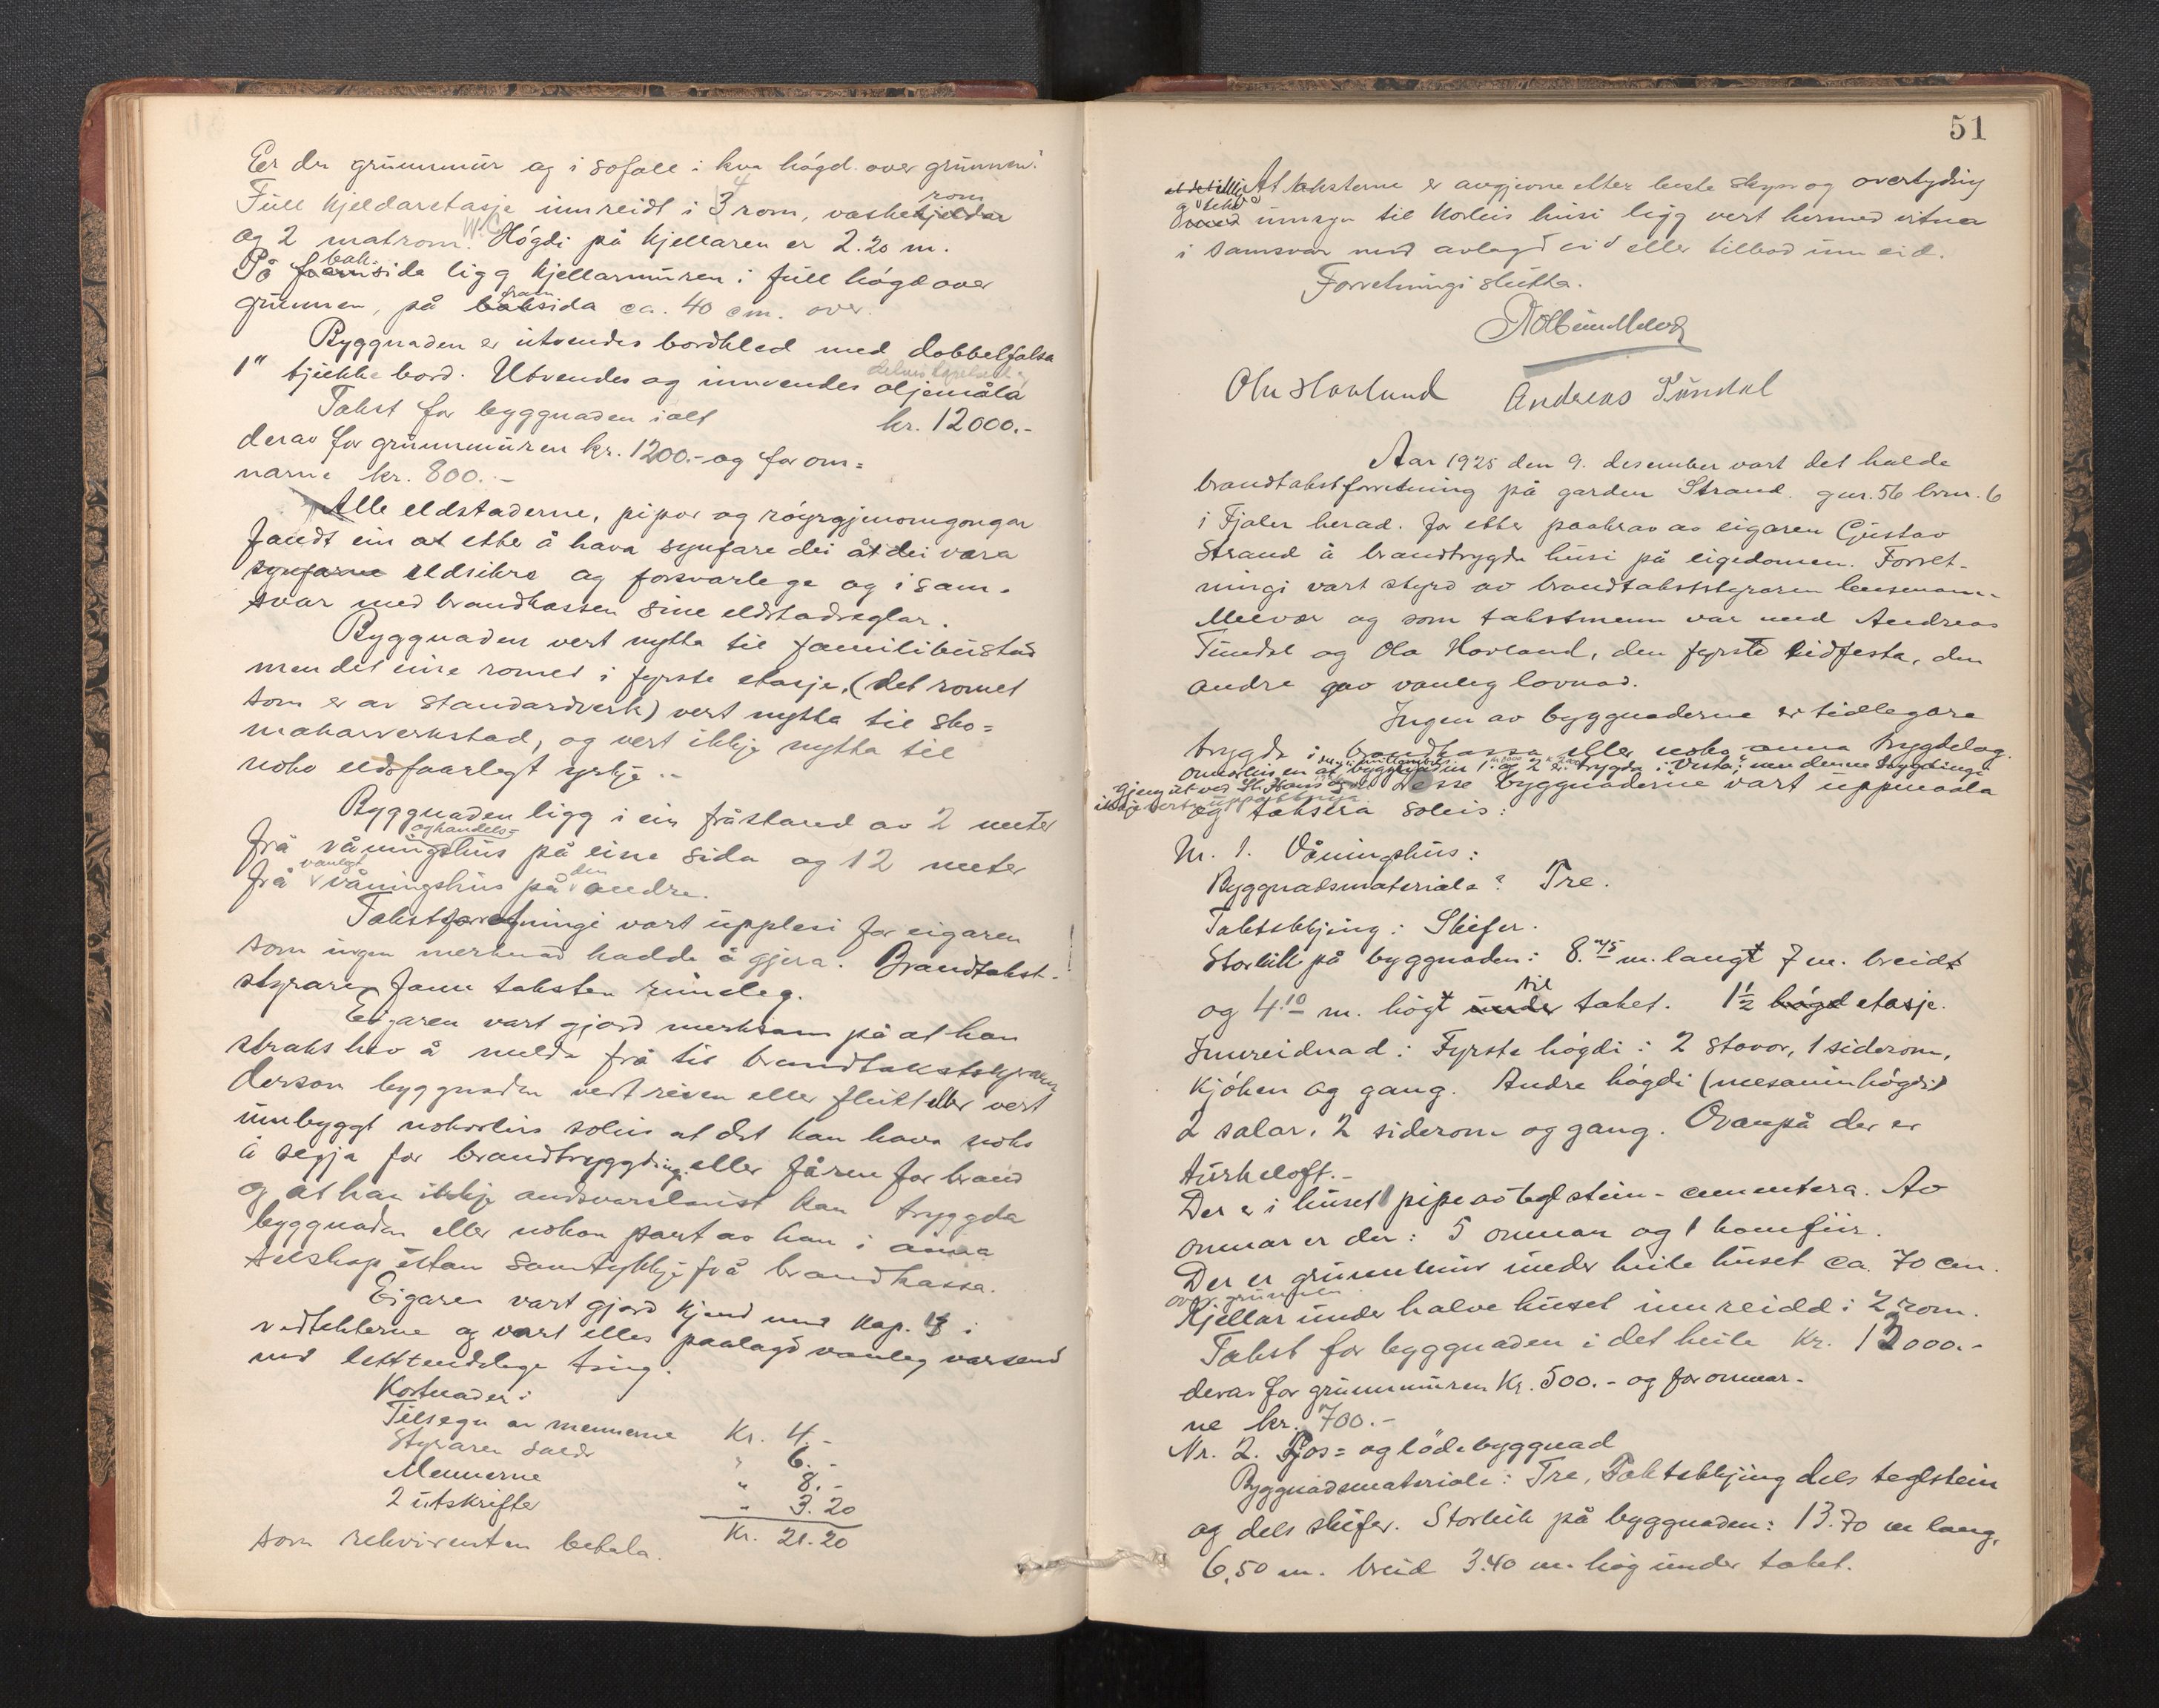 Er der grunnmur og i sofall i kva högd over grunnen?
Full kjeldaretasje innreidt i 3 4 rom, vaskekjeldar rom
og 2 matrom. W.C. Högdi på kjellaren er 2.20 m.
På framsida bak- ligg kjellarmuren i full högd over
grunnen, på baksida fram ca. 40 cm. over.
Byggnaden er utvendes bordkled med dobbelfalsa
1" tjukke bord. Utvendes og innvendes oljemåla
Takst for byggnaden ialt kr. 12000.-
derav for grunnmuren kr. 1200.- og for om=
narne kr. 800.-
Alle eldstaderne, pipor og röyrgjenomgongar
fandt ein at etter å hava synfare dei åt dei vara
synfarne eldsikre og forsvarlege og i sam-
svar med brandkassen sine eldstadreglar.
Byggnaden vert nytta til familibustad
men det eine romet i fyrste etasje, (det romet
som er av standardverk) vert nytta til sko=
makarverkstad, og vert ikkje nytta til
noko eldsfaarlegt yrkje.-
Byggnaden ligg i ein fråstand av 2 meter
frå våningshus oghandels= på eine sida og 12 meter
frå vanlegt våningshus på den andre.
Takstforretningi vart upplesi for eigaren
som ingen merknad hadde å gjera. Brandtakst-
styraren fann taksten rimeleg.
Eigaren vart gjord merksam på at han
straks hev å melde frå til brandtakststyraren
dersom byggnaden vert riven eller flutt eller vert
umbyggt nokorleis soleis at det kan hava noko
å segja for brandtryggdingi eller fåren for brand
og at han ikkje andsvarslaust kan tryggda
byggnaden eller nokon part av han i anna
selskap utan samtykkje frå brandkassa.
Eigaren vart gjord kjend med Kap. 4 i
vedtekterne og vart elles paalagd vanleg varsemd
med lettendelege ting.
Kostnader:
Tilsegn av mennerne Kr. 4.-
Styraren sald " 6.-
Mennerne " 8.-
2 utskrifter " 3.20
Kr. 21.20
som rekvirenten betala.
51
At taksterne er avgjevne etter beste skyn og overtyding
innsyn til korleis husi ligg vert hermed vitna
i samsvar med avlagd eid eller tilbod um eid.
Forretningi slutta.
Ola Hovland Andreas Tundal
Aar 1925 den 9. desember vart det halde
brandtakstforretning på garden Strand. gnr. 56 brn. 6
i Fjaler herad. for etter paakrav av eigaren Gustav
Strand å brandtrygde husi på eigedomen. Forret-
ningi vart styrd av brandtakststyraren lensmann
Meevær og som takstmenn var med Andreas
Tundal og Ola Hovland, den fyrste eidfesta, den
andre gav vanleg lovnad.
Ingen av byggnaderne er tidlegare
trygda i brandkassa eller noko anna trygdelag.
byggnadin 1. og 2 er trygda i Vesta, men denne trygdingi
gjeng ut ved
Desse byggnaderne vart uppmaala
og taksera soleis:
Nr. 1. Våningshus:
Byggnadsmateriale: Tre.
Taktekkjing: Skifer.
Storleik på byggnaden: 8.45 m. langt 7 m. breidt
og 4.10 m. högt under til taket. 1½ högd etasje.
Innreidnad: Fyrste högdi: 2 stovor, 1 siderom,
kjöken og gang. Andre högdi (mesaninhögdi)
2 salar, 2 siderom og gang. Ovanpå der er
turkeloft.-
Der er i huset 1 pipe av teglstein - cementera. Av
omnar er der: 5 omnar og 1 komfur.
Der er grunnmur under heile huset ca. 70 cm.
over grunnen
Kjellar under halve huset innreidd i 2 rom.
Takst for byggnaden i det heile Kr. 12000.-
derav for grunnmuren Kr. 500.- og for omnar-
ne kr. 700.-
Nr. 2. Fjos= og lödebyggnad
Byggnadsmateriale: Tre, Taktekkjing dels teglstein
og dels skifer. Storleik på byggnaden: 13.70 m lang,
6,50 m. breid 3.40 m. hög under taket.